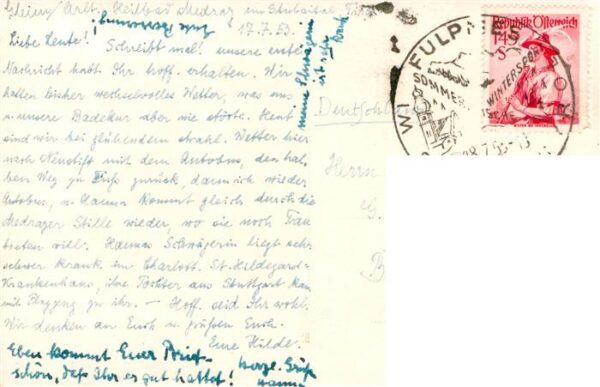 Gleinz Arlt. Heilbad Medraz im Stubaital, Tirol
17.7.53.
Gute Besserung!
Liebe Leute! Schreibt mal! unsere erste
Nachricht habt Ihr hoff. erhalten. Wir
hatten bisher wechselvolles Wetter, was uns
u. unsere Badekur aber nie störte. Heut
sind wir bei glühendem strahl. Wetter hier
nach Neustift mit dem Autobus, den hal-
ben Weg zu Fuß zurück, dann ich wieder
Autobus, u. Hanna kommt gleich durch die
Medrazer Stille wieder, wo sie noch
treten will. Hannas Schwägerin liegt sehr
schwer krank im Charlott. St. Hildegard-
Krankenhaus, ihre Tochter aus Stuttgart kam
mit Flugzeug zu ihr. — Hoff. seid Ihr wohl.
Wir denken an Euch u. grüßen Euch.
Eure Hilde.
Eben kommt Euer Brief-
schön, daß Ihr es gut hattet!
herzl. Grüße
Hanna
meine Schwägerin
ist sehr krank
Deutschl
Herrn
Republik Österreich
1.45
S
FULPMES
SOMMER
WINTERSPORT
TIROL
28.7.53-13